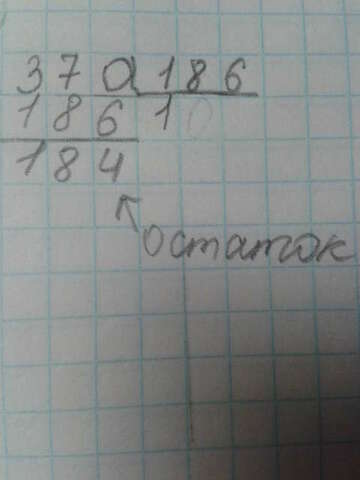 370 186
186 1
184
остаток